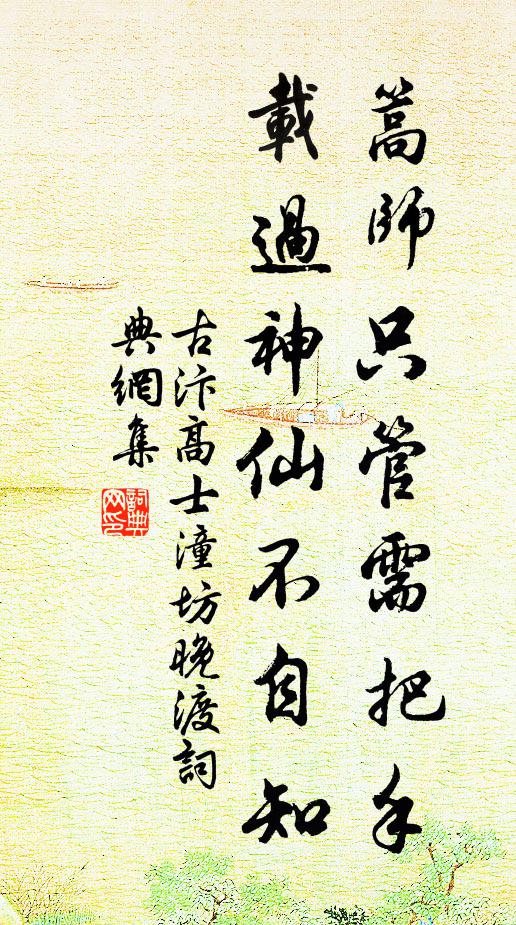 蒿師只管需把手
載過神仙不自知
古汴高士潼坊晚渡詞
典網集
詞典
网印